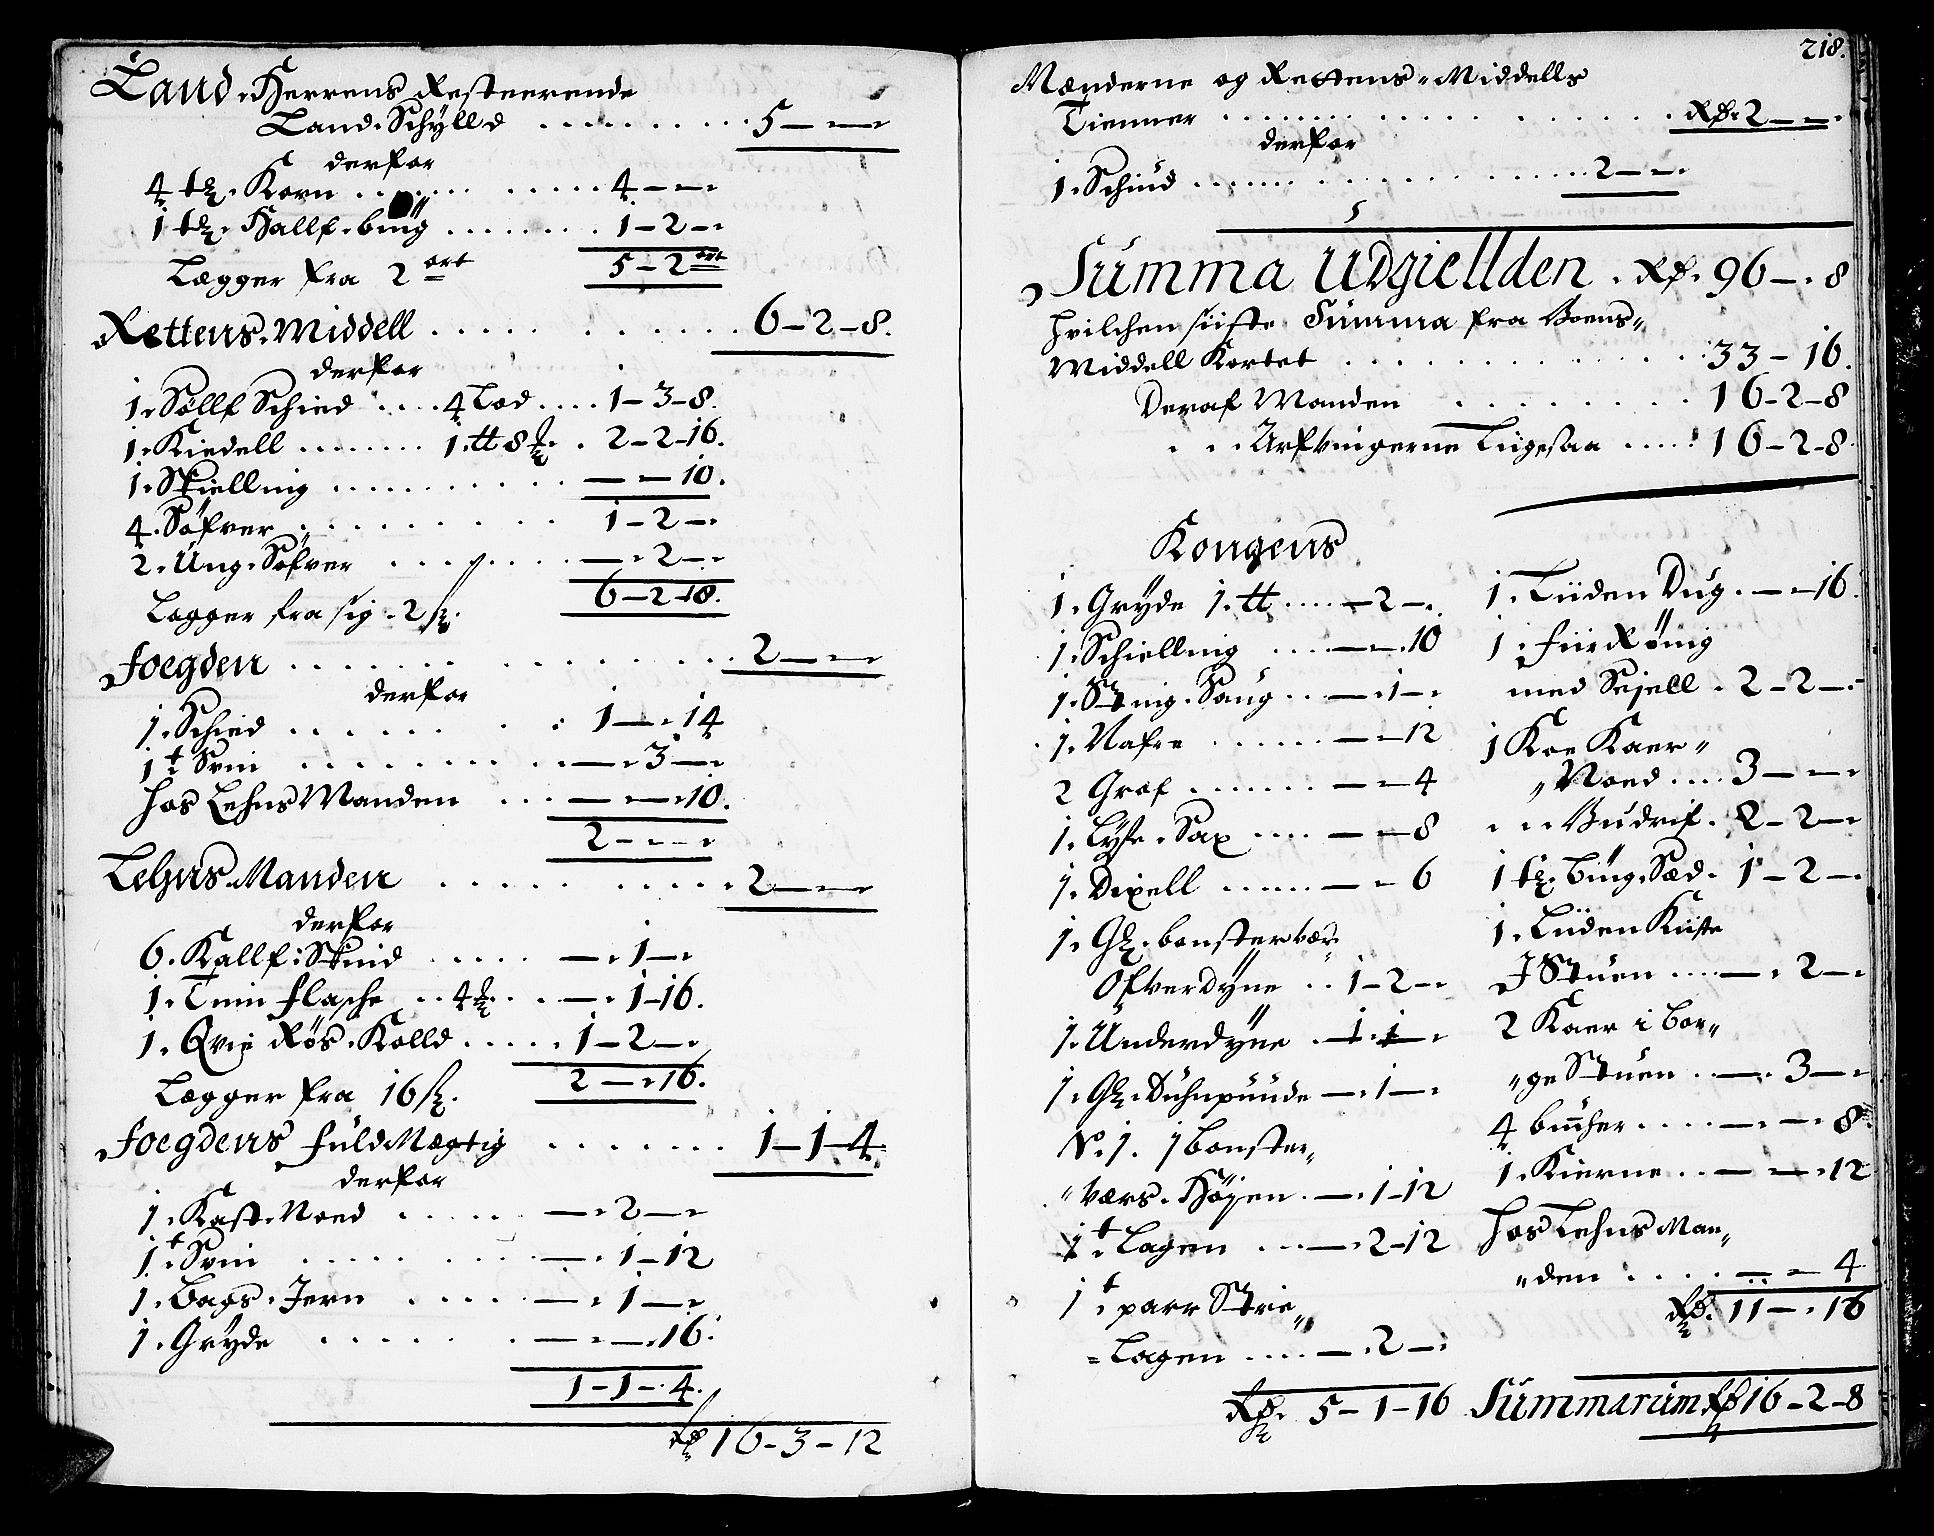 Land-Herrens Resteerende
Land-Schylld . . . . . 5 — —
derfor
4 tr. Korn . . . . . 4 — —
1 tr. Hallf-büg . . . . . 1 – 2 –
Lægger fra 2 ort 5 – 2 ort
Rettens-Middell . . . . . 6 – 2 – 8.
derfor
1. Søllf Schied . . . . 4 Lod . . . . 1 – 3 – 8.
1. Kiedell . . . . . 1. tt 8 . . 2 – 2 – 16.
1. Skielling . . . . . — — 10.
4. Söfver . . . . . 1 – 2 –
2. Ung-Söfver . . . . . — 2 —
6 – 2 – 18.
Lægger fra sig . 2 s.
Foegden . . . . . 2 — —
derfor
1. Schied . . . . . 1 — 14
1 t Sviin . . . . . — 3 —
hos LehnsManden . . . — — 10.
2 — —
Lehns-Manden . . . . . 2 — —
derfor
6. Kallf-Skind . . . . . — 1 —
1. Tiin flasche . . 4 . . . — 1 – 16.
1. Qvie Røs-Kolld . . . . . 1 – 2 –
Lægger fra 16 s. 2 — 16.
Foegdens FuldMægtig . . . . . 1 – 1 – 4
derfor
1. Kast-Noed . . . . . — 2 —
1 t Sviin . . . . . — 1 – 12
1. Bags-Jern . . . . . — 1 —
1. Gryde . . . . . — — 16.
1 – 1 – 4.
Rd 16 – 3 – 12
218.
Mænderne og Rettens-Middells
Tienner . . . . . Rd. 2 — —
derfor
1. Schiud . . . . . 2 — —
Summa Udgiellden . Rd. 96 — 8
hvilchen siiste Summa fra Boens-
Middell Kortet . . . . . 33 – 16.
Deraf Manden . . . . . 16 – 2 – 8
" " Arfvingerne Liigesaa . . . . . 16 – 2 – 8.
Kongens
1. Gryde 1. tt . . . . . — 2 —
1. Schielling . . . . — — 10
1. Sting-Saug . . — 1 —
1. Nafre . . . . . — — 12
2 Graf . . . . . — — 4
1. Lyse-Sax . . . . — — 8
1. Dixell . . . . . — — 6
1. Gl. bonstervær-
Ofverdyne . . 1 – 2 –
1. Underdyne . — 1 —
1. Gl. Duhnpuude — 1 —
No. 1. 1 bonster-
værs-Højen . — 1 – 12
1 t Lagen . . . — 2 – 12
1 t parr Strie-
Lagen . . . . — 2 —
Rd. 5 – 1 – 16
1. Liiden Dug . — — 16.
1. fiir Rønig
med Sejell . 2 – 2 —
1 Koe Kaer-
Noed . . . . 3 — —
" " Budrif . 2 – 2 —
1 tr. büg-Sæd . 1 – 2 —
1. Liiden Kiiste
J Stuen . . . . — 2 —
2 Kaer i bor-
ge Stuen . . — 3 —
4 bucher . . . . — — 8
1. Kierne . . — — 12
hos Lehns Man-
den . . . . — — 4
Rd. 11 — 16
Summarum Rd 16 – 2 – 8